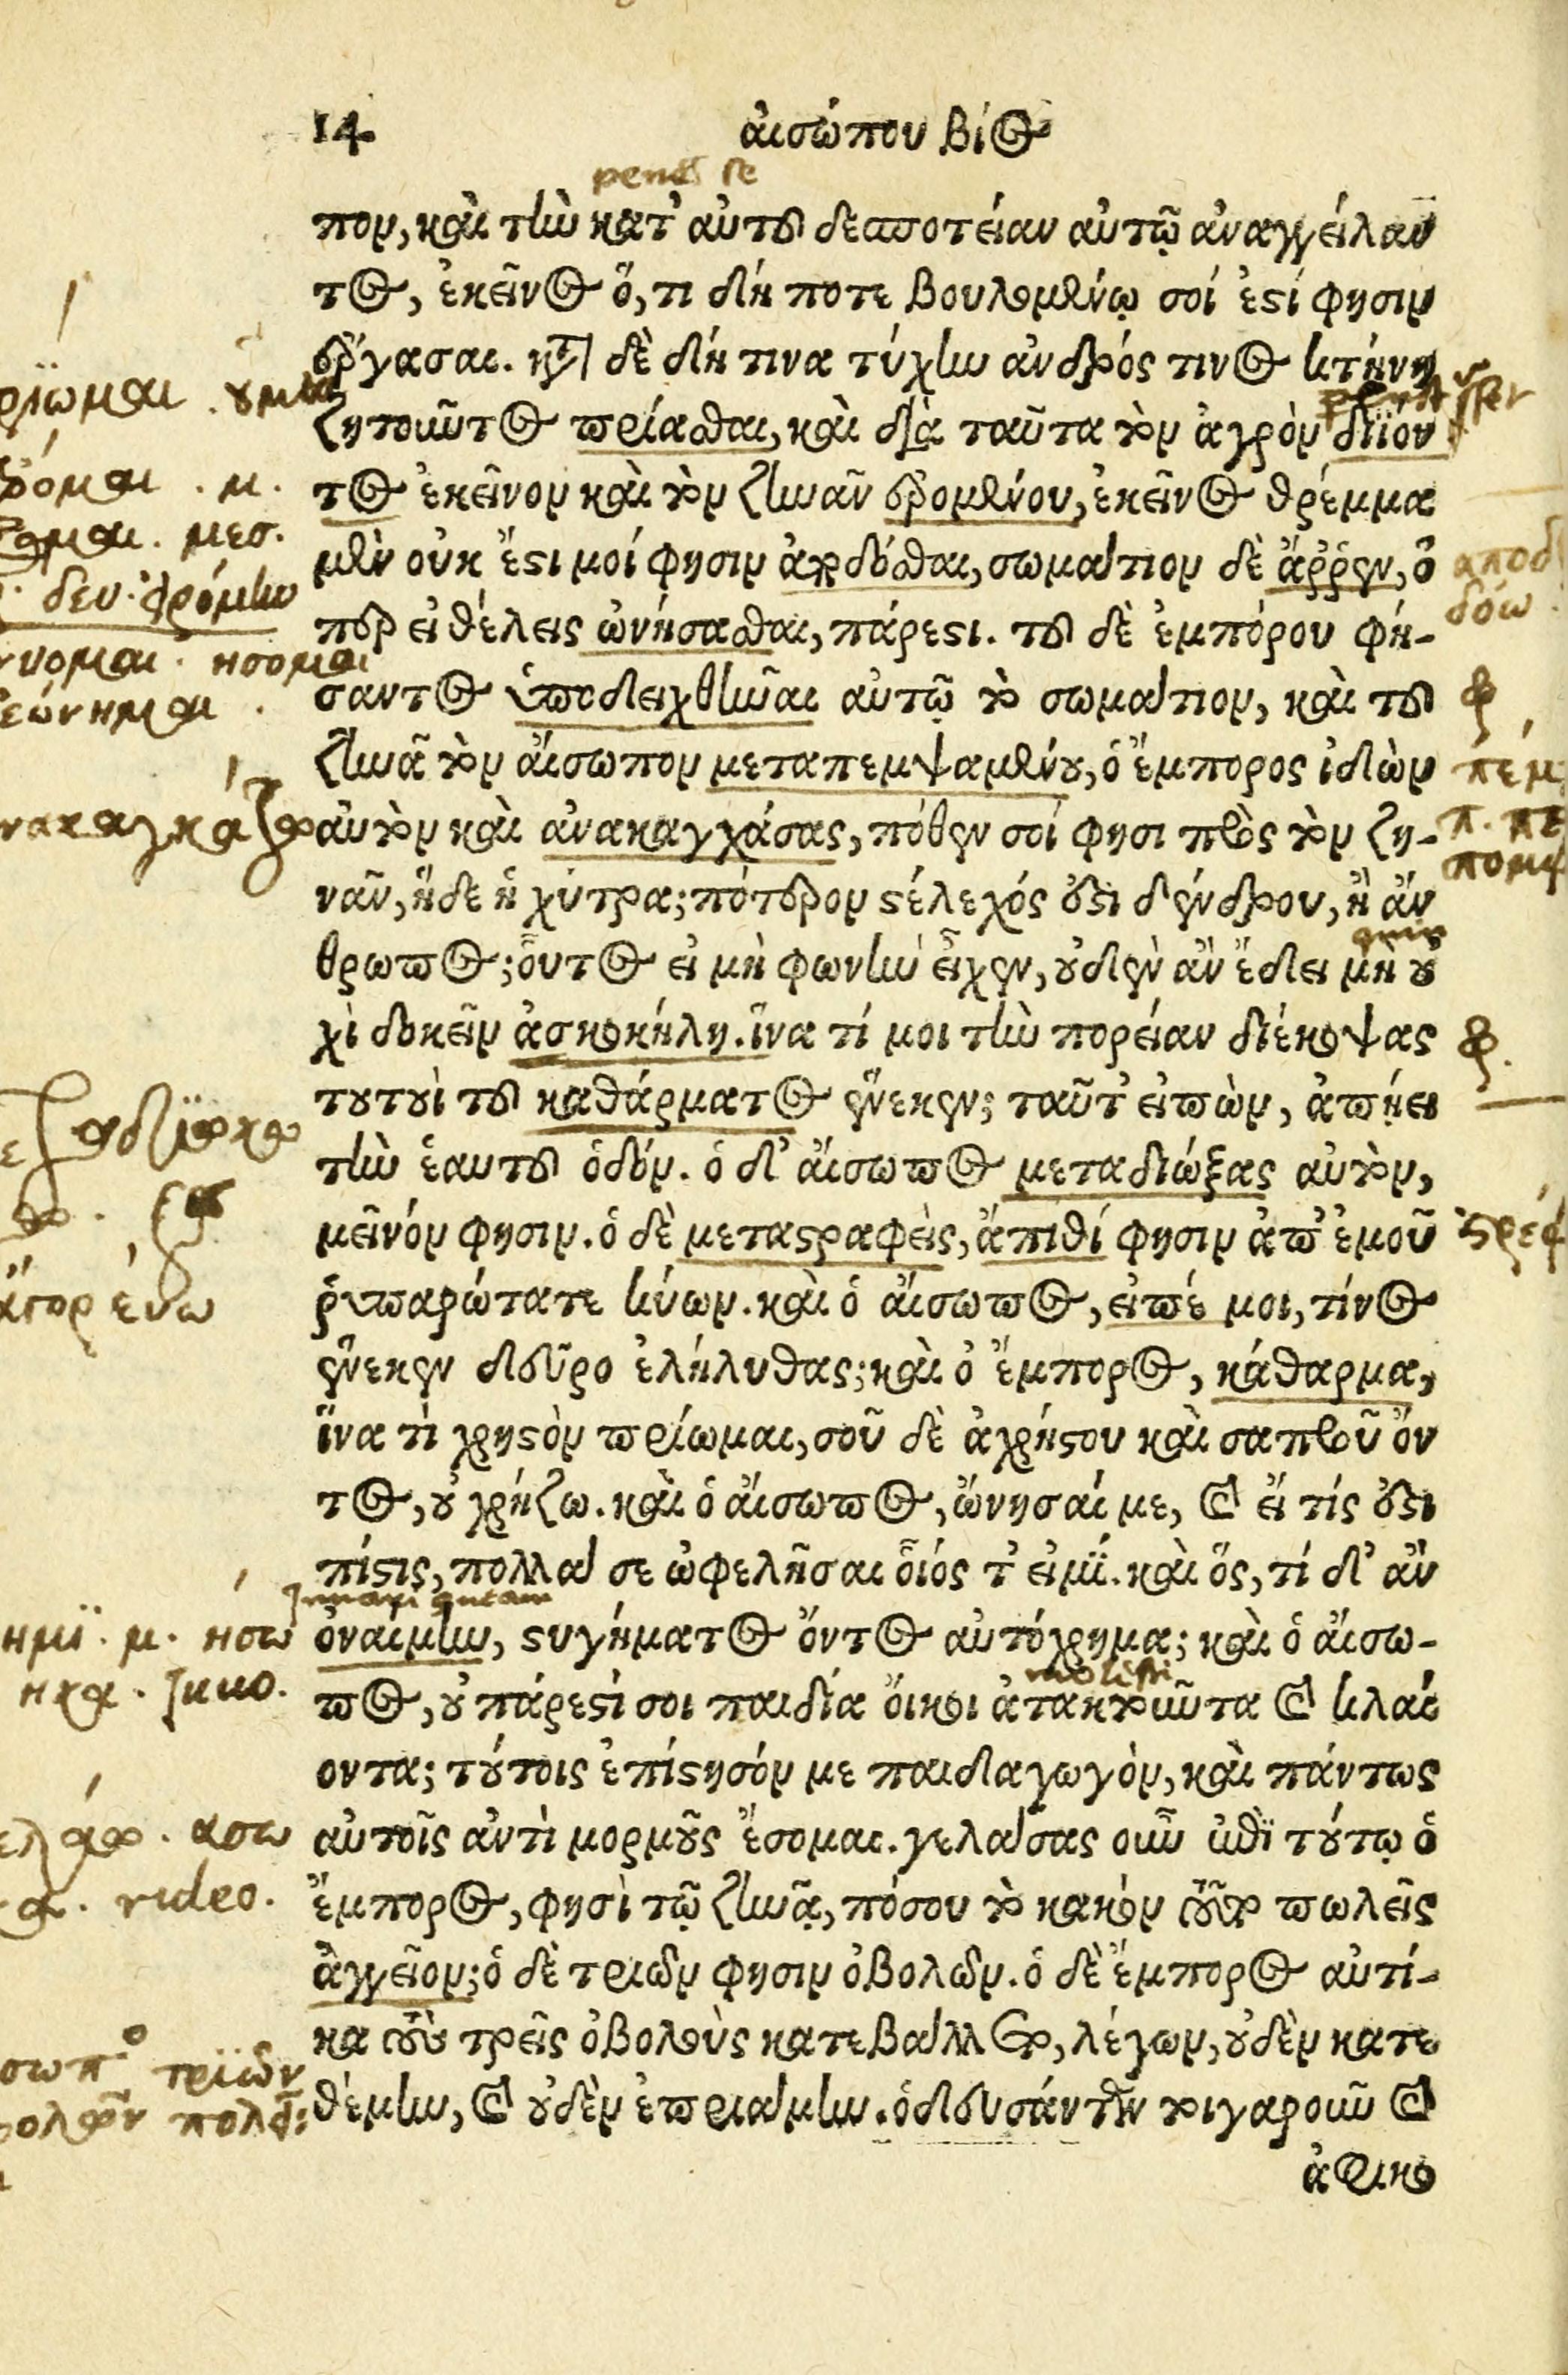 14 αἰσώπου βίος
penes te
πον, καὶ τὴν κατ' αὐτοῦ δεσποτείαν αὐτῷ ἀναγγείλαν
τος, ἐκεῖνος ὅ,τι δή ποτε βουλομένῳ σοί ἐστί φησιν
ἔργασαι. κατὰ δὲ δή τινα τύχην ἀνδρός τινος κτήνη
ζητοῦντος πρίασθαι, καὶ διὰ ταῦτα τὸν ἀγρὸν διϊόν
τος ἐκεῖνον καὶ τὸν ζηνᾶν ἐρομένου, ἐκεῖνος θρέμμα
μὲν οὐκ ἔστι μοί φησιν ἀποδόσθαι, σωμάτιον δὲ ἄῤῥεν, ὅ
περ εἰ θέλεις ὠνήσασθαι, πάρεστι. τοῦ δὲ ἐμπόρου φή-
σαντος ὑποδειχθῆναι αὐτῷ τὸ σωμάτιον, καὶ τοῦ
ζηνᾶ τὸν αἴσωπον μεταπεμψαμένου, ὁ ἔμπορος ἰδὼν
αὐτὸν καὶ ἀνακαγχάσας, πόθεν σοί φησι πρὸς τὸν ζη-
νᾶν, ἥδε ἡ χύτρα; πότερον στέλεχός ἐστι δένδρου, ἢ ἄν
θρωπος; οὗτος εἰ μὴ φωνὴν εἶχεν, οὐδὲν ἂν ἔδει μὴ οὐ
χὶ δοκεῖν ἀσκοκήλη. ἵνα τί μοι τὴν πορείαν διέκοψας
τουτουὶ τοῦ καθάρματος ἕνεκεν; ταῦτ' εἰπὼν, ἀπῄει
τὴν ἑαυτοῦ ὁδόν. ὁ δ' αἴσωπος μεταδιώξας αὐτὸν,
μεῖνόν φησιν. ὁ δὲ μεταστραφεὶς, ἄπιθί φησιν ἀπ' ἐμοῦ
ῥυπαρώτατε κύων. καὶ ὁ αἴσωπος, εἰπέ μοι, τίνος
ἕνεκεν δεῦρο ἐλήλυθας; καὶ ὁ ἔμπορος, κάθαρμα,
ἵνα τὶ χρηστὸν πρίωμαι, σοῦ δὲ ἀχρήστου καὶ σαπροῦ ὄν
τος, οὐ χρήζω. καὶ ὁ αἴσωπος, ὤνησαί με, καὶ εἴ τίς ἐστι
πίστις, πολλά σε ὠφελῆσαι οἷός τ' εἰμί. καὶ ὅς, τί δ' ἂν
ὀναίμην, στυγήματος ὄντος αὐτόχρημα; καὶ ὁ αἴσω-
πος, οὐ πάρεστί σοι παιδία οἴκοι ἀτακτοῦντα καὶ κλαί
οντα; τούτοις ἐπίστησόν με παιδαγωγὸν, καὶ πάντως
αὐτοῖς ἀντὶ μορμοῦς ἔσομαι. γελάσας οὖν ἐπὶ τούτῳ ὁ
ἔμπορος, φησὶ τῷ ζηνᾷ, πόσου τὸ κακὸν τοῦτο πωλεῖς
ἀγγεῖον; ὁ δὲ τριῶν φησιν ὀβολῶν. ὁ δὲ ἔμπορος αὐτί-
κα τοὺς τρεῖς ὀβολοὺς κατεβάλλετο, λέγων, οὐδὲν κατε
θέμην, καὶ οὐδὲν ἐπριάμην. ὁδευσάντων τοιγαροῦν καὶ
ἀφικο
video.